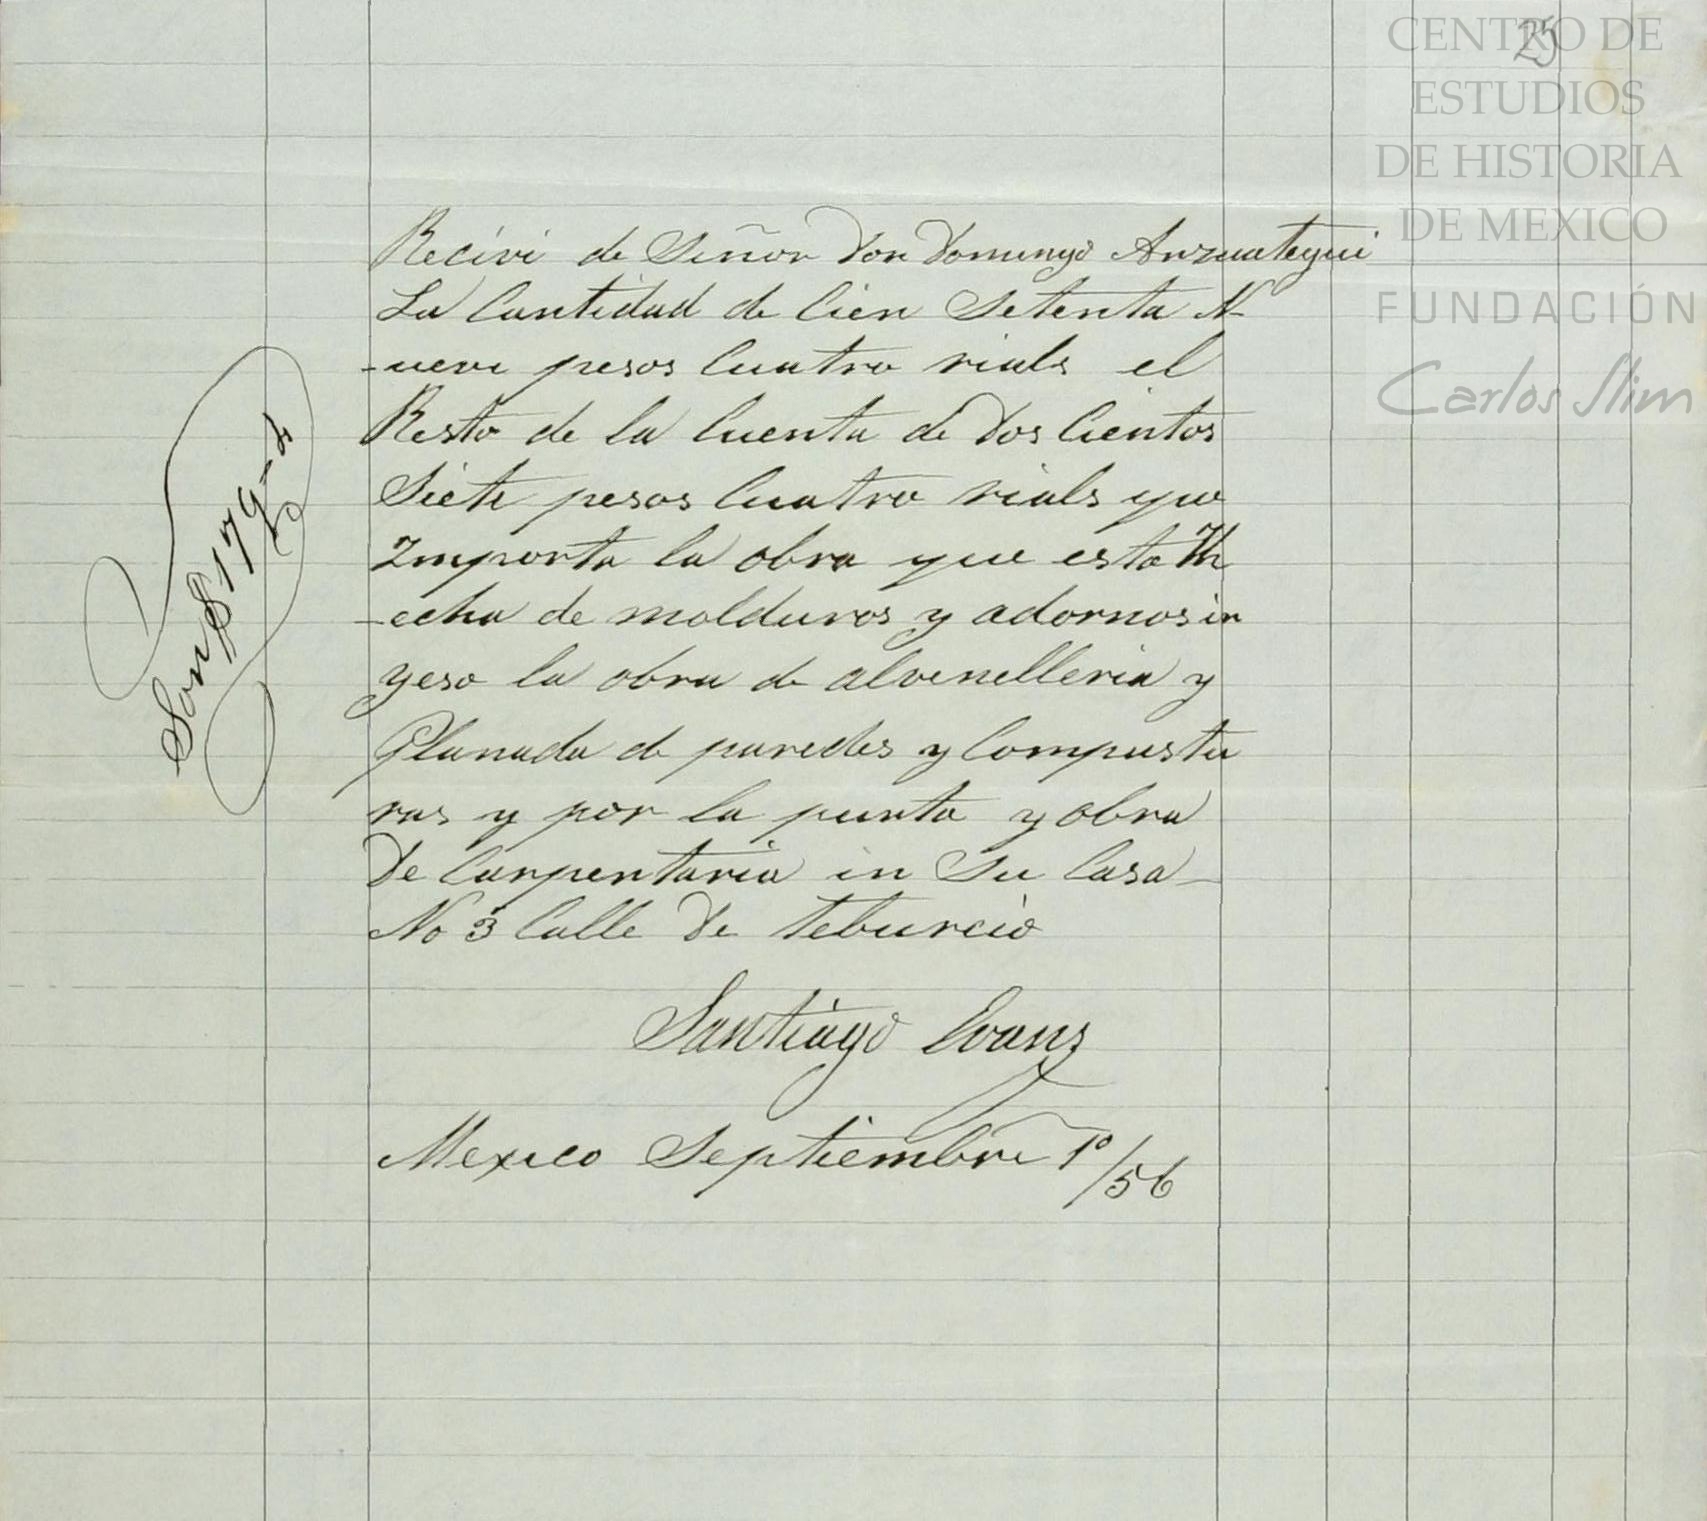 25
CENTRO DE
ESTUDIOS
DE HISTORIA
DE MEXICO
FUNDACIÓN
Carlos Slim
Recivi de Señor Don Domingo Anzuategui
La Cantidad de Cien Setenta N-
-ueve pesos Cuatro rials el
Resto de la Cuenta de Dos Cientos
Siete pesos Cuatro rials que
Importa la obra que esta H
-echa de molduros y adornos in
yeso la obra de alvenelleria y
Planada de paredes y Compustu
ras y por la punta y obra
De Carpentaria in Su Casa
No 3 Calle De Teburcio
Santiago Evans
Mexico Septiembre 1º/56
Son $179-4